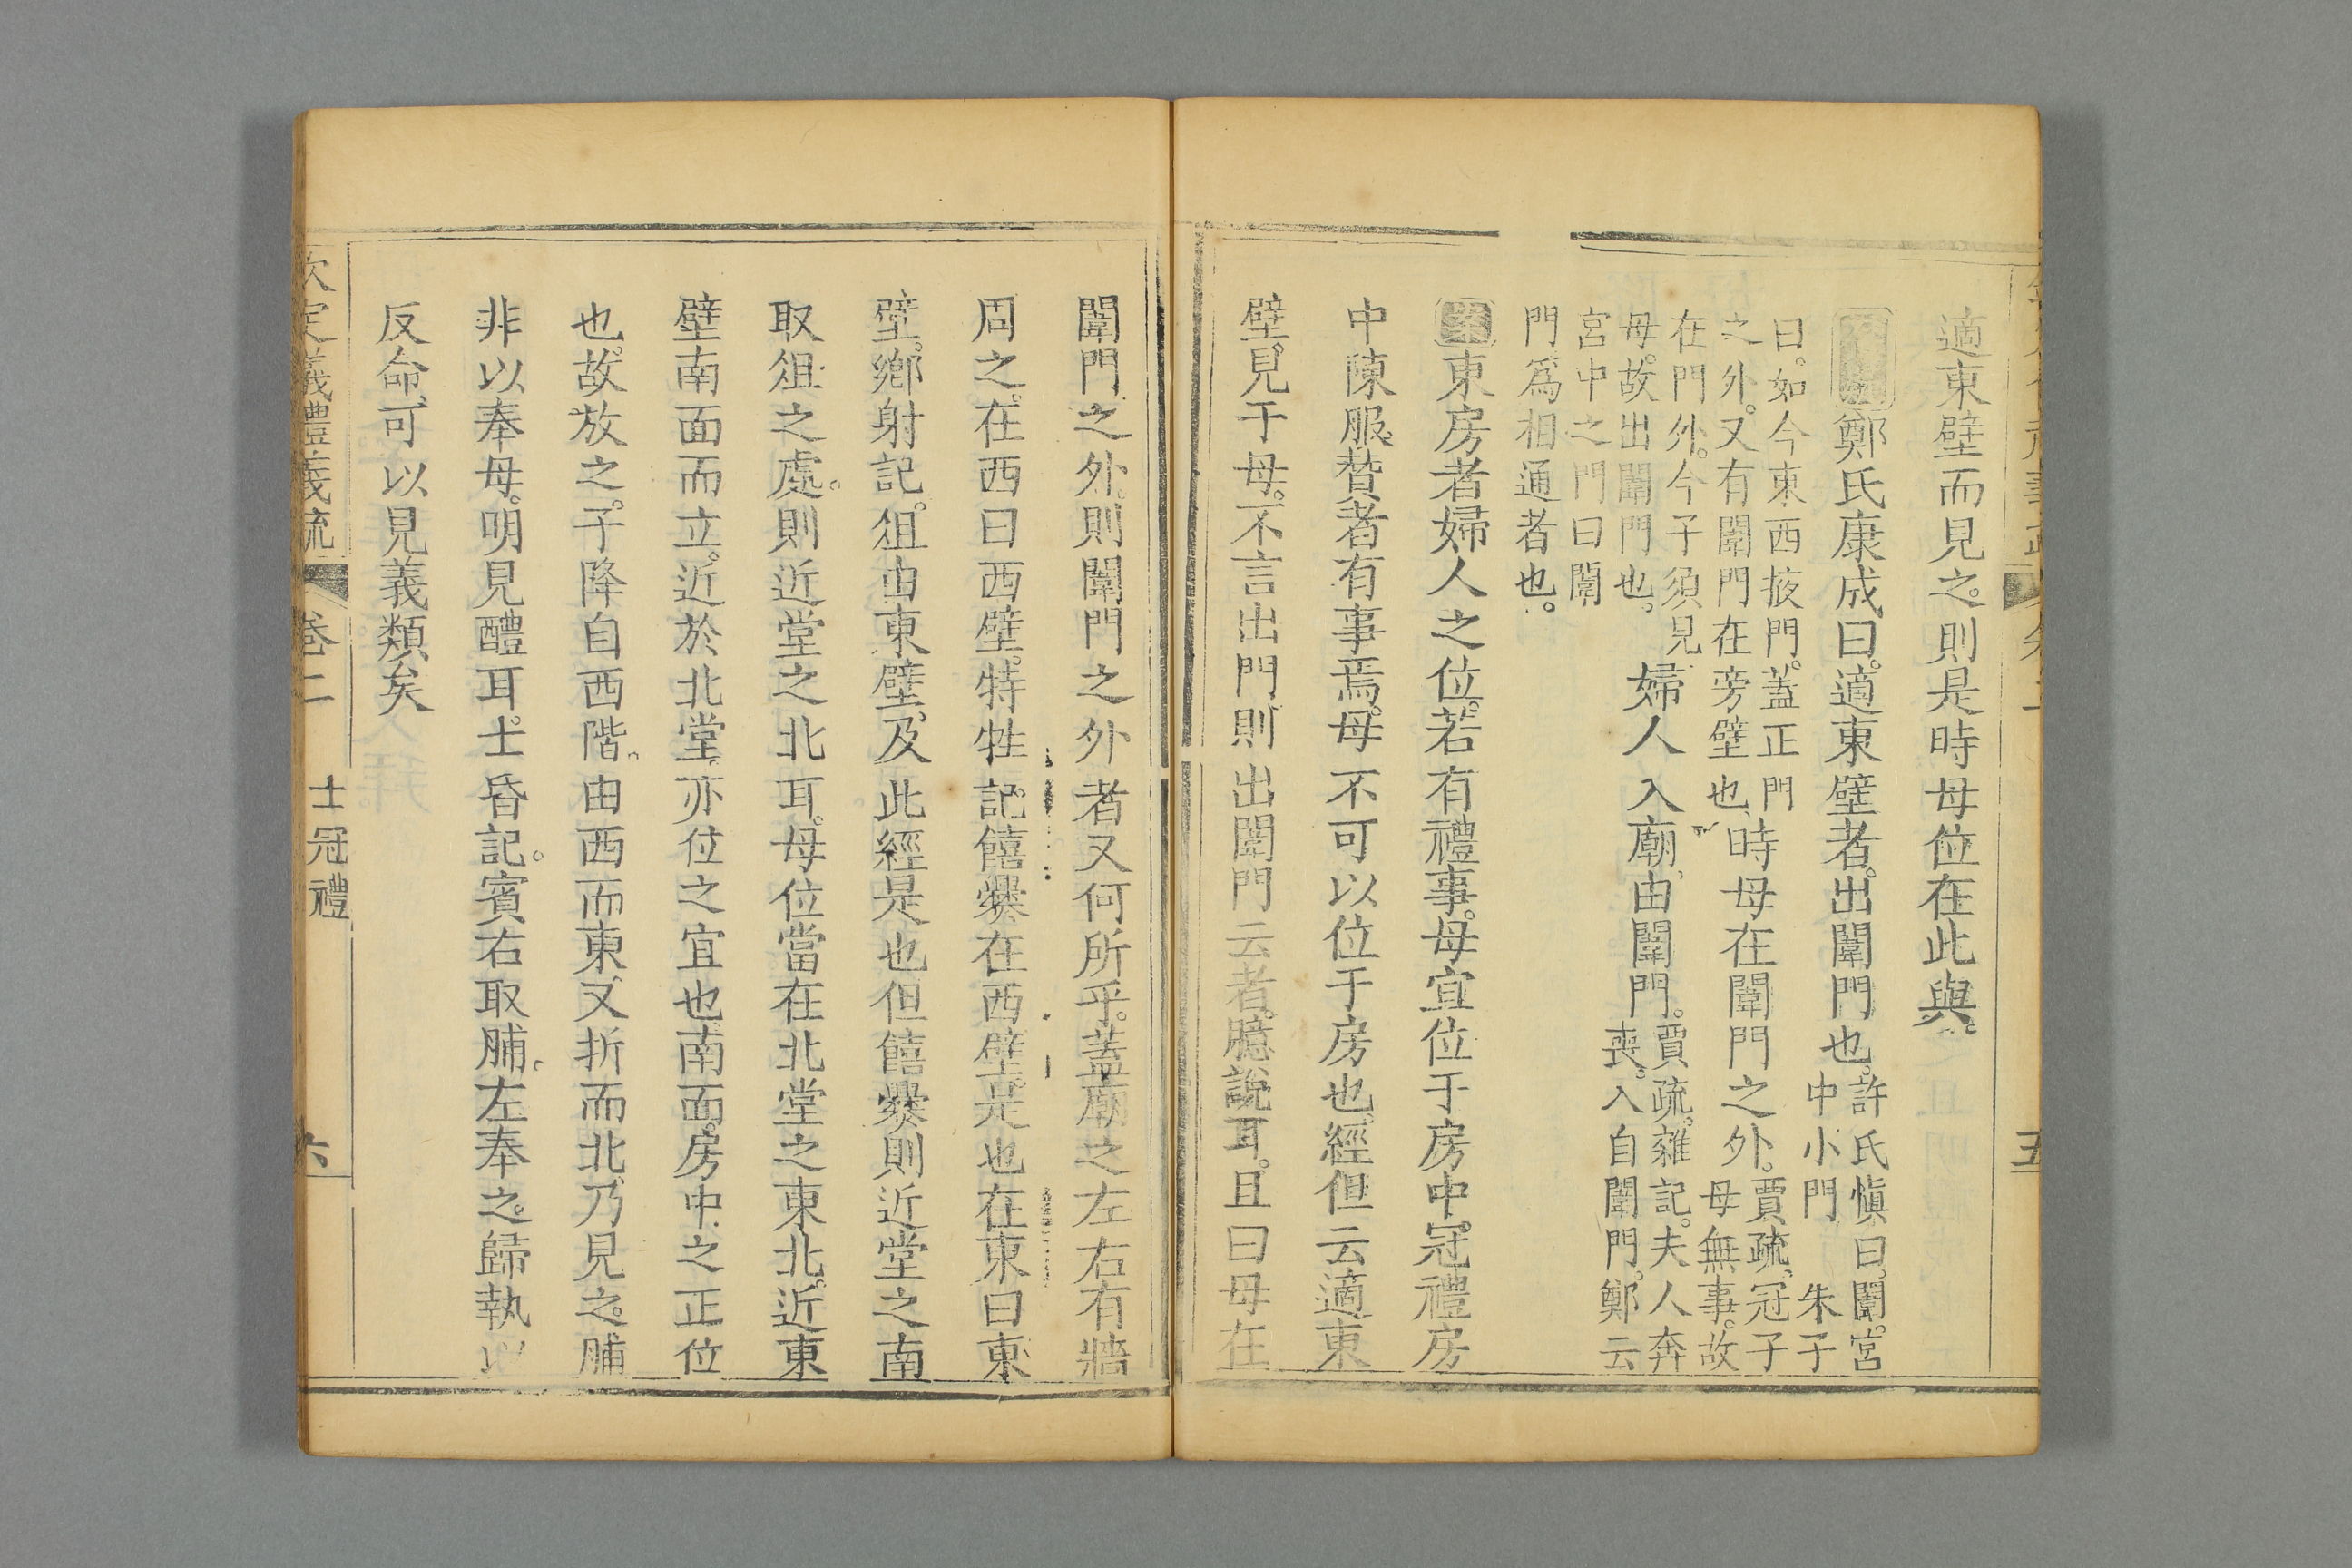 適東壁而見之。則是時母位在此與。
鄭氏康成曰。適東壁者。出闈門也。
許氏愼曰。闈。宮
中小門 朱子
曰。如今東西掖門。蓋正門
之外。又有闈門在旁壁也
時母在闈門之外。
賈疏。冠子
母無事。故
在門外。今子須見
母。故出闈門也。
婦人入廟。由闈門。
賈疏。雜記。夫人奔
喪。入自闈門。鄭云
宮中之門曰闈
門爲相通者也。
案東房者婦人之位。若有禮事。母宜位于房中。冠禮房
中陳服。贊者有事焉。母不可以位于房也。經但云適東
壁。見于母。不言出門。則出闈門云者。臆說耳。且曰母在
闈門之外。則闈門之外者又何所乎。蓋廟之左右有牆
周之。在西曰西壁。特牲記饎爨在西壁。是也在東曰東
壁。鄉射記。俎由東壁。及此經是也但饎爨則近堂之南
取俎之處。則近堂之北耳。母位當在北堂之東北。近東
壁南面而立。近於北堂。亦位之宜也南面。房中之正位
也。故放之。子降自西階。由西而東。又折而北。乃見之。脯
非以奉母。明見醴耳。士昏記。賓右取脯。左奉之。歸執以
反命。可以見義類矣
欽定義禮義疏 卷二 士冠禮 六